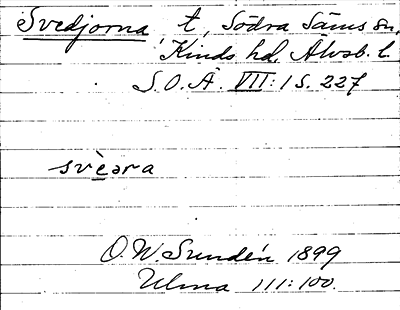 Svedjorna, t, Södra Säms sn,
Kinds hd, Älvsb. l.
S.O.Ä. VII:1 S. 227
svèara
O.W. Sundén 1899
Ulma 111:100.